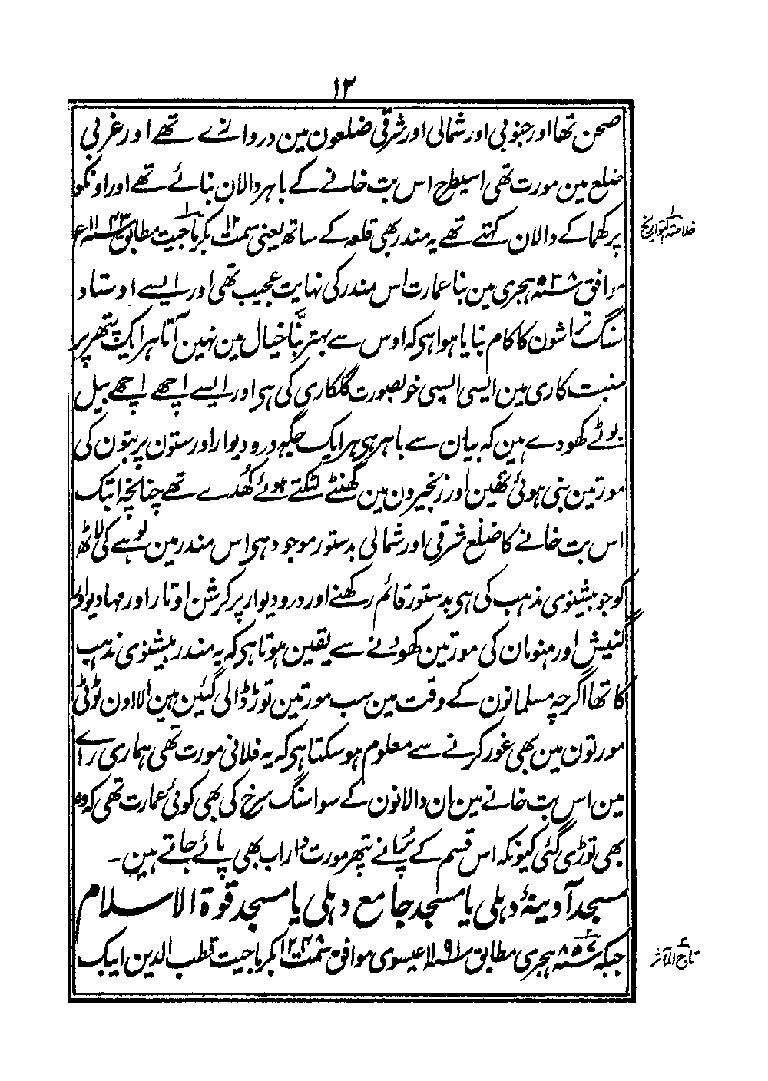 ۱۳
صحن تھا اور جنوبی اور شمالی اور شرقی ضلعون مین دروازے تھے اور غربی
ضلع مین مورت تھی اسیطرح اس بت خانے کے باہر دالان بنائے تھے اور اونکو
پرکھما کے دالان کہتے تھے یہ مندر بھی قلعہ کے ساتھ یعنی سمت ۱۲ بکرماجیت مطابق ۱۱۴۳ ء
خلاصۃ التواریخ
موافق ۵۳۸ ہجری مین بنا عمارت اس مندر کی نہایت عجیب تھی اور ایسے اوستاد
سنگ تراشون کا کام بنایا ہوا ہی کہ اوس سے بہتر بننا خیال مین نہین آتا ہر ایک پتھر پر
منبت کاری مین ایسی ایسی خوبصورت گلکاری کی ہی اور ایسے اچھے اچھے بیل
بوٹے کھودے ہین کہ بیان سے باہر ہی ہر ایک جگہ درو دیوار اور ستون پر بتون کی
مورتین بنی ہوئی تھین اور زنجیرون مین گھنٹے لٹکتے ہوئے کُھدے تھے چنانچہ ابتک
اس بت خانے کا ضلع شرقی اور شمالی بدستور موجود ہی اس مندر مین لوہے کی لاٹھ
کو جو بشنوی مذہب کی ہی بدستور قائم رکھنے اور درو دیوار پر کرشن اوتار اور مہادیو اور
گنیش اور ہنومان کی مورتین کھودنے سے یقین ہوتا ہی کہ یہ مندر بشنوی مذہب
کا تھا اگرچہ مسلمانون کے وقت مین سب مورتین توڑ ڈالی گئین ہین الا اون ٹوٹی
مورتون مین بھی غور کرنے سے معلوم ہو سکتا ہی کہ یہ فلانی مورت تھی ہماری رائے
مین اس بت خانے مین ان دالانون کے سوا سنگ سرخ کی بھی کوئی عمارت تھی کہ وہ
بھی توڑی گئی کیونکہ اس قسم کے پُرانے پتھر مورت دار اب بھی پائے جاتے ہین۔
مسجد آدینۂ دہلی یا مسجد جامع دہلی یا مسجد قوۃ الاسلام
جبکہ ۵۸۷ ہجری مطابق ۱۱۹۱ عیسوی موافق سمت ۱۲۴۸ بکرماجیت قطب الدین ایبک
تاج المآثر